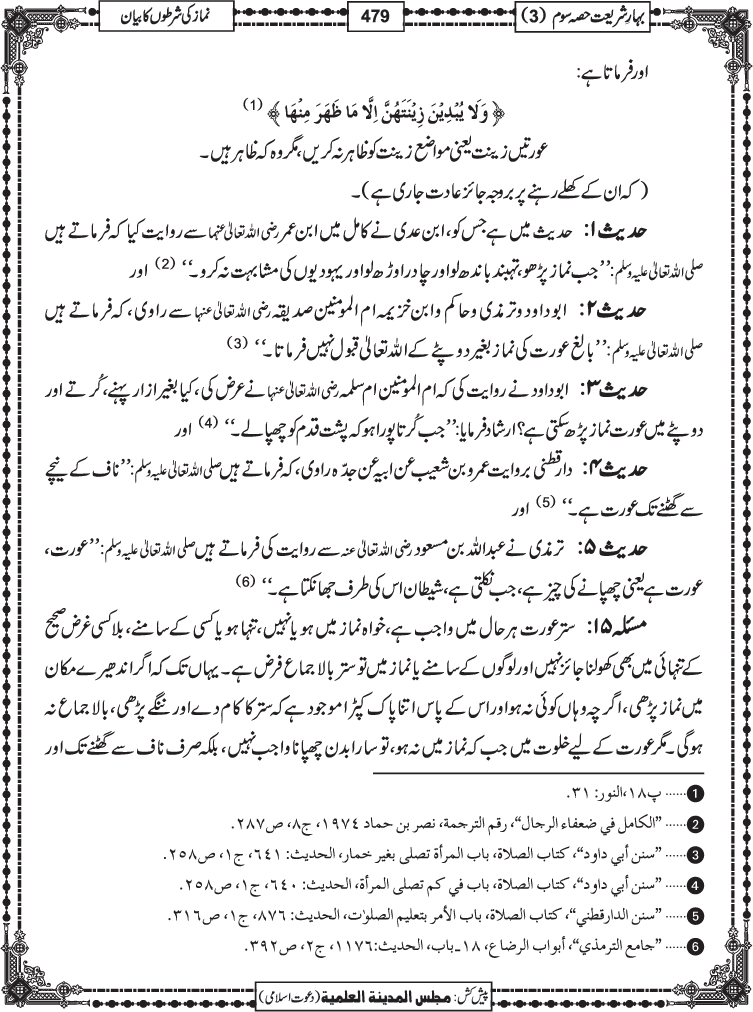 بہارِ شریعت حصہ سوم (3)
479
نماز کی شرطوں کا بیان
اور فرماتا ہے:
﴿ وَلَا یُبْدِیْنَ زِیْنَتَهُنَّ اِلَّا مَا ظَهَرَ مِنْهَا ﴾ (1)
عورتیں زینت یعنی مواضع زینت کو ظاہر نہ کریں، مگر وہ کہ ظاہر ہیں۔
(کہ ان کے کھلے رہنے پر بروجہ جائز عادت جاری ہے)۔
حدیث ۱: حدیث میں ہے جس کو، ابن عدی نے کامل میں ابن عمر رضی اللہ تعالیٰ عنہما سے روایت کیا کہ فرماتے ہیں
صلی اللہ تعالیٰ علیہ وسلم: ’’جب نماز پڑھو، تہبند باندھ لو اور چادر اوڑھ لو اور یہودیوں کی مشابہت نہ کرو۔‘‘ (2) اور
حدیث ۲: ابو داود و ترمذی و حاکم و ابن خزیمہ ام المومنین صدیقہ رضی اللہ تعالیٰ عنہا سے راوی، کہ فرماتے ہیں
صلی اللہ تعالیٰ علیہ وسلم: ’’بالغ عورت کی نماز بغیر دوپٹے کے اللہ تعالیٰ قبول نہیں فرماتا۔‘‘ (3)
حدیث ۳: ابو داود نے روایت کی کہ ام المومنین ام سلمہ رضی اللہ تعالیٰ عنہا نے عرض کی، کیا بغیر ازار پہنے، کُرتے اور
دوپٹے میں عورت نماز پڑھ سکتی ہے؟ ارشاد فرمایا: ’’جب کُرتا پورا ہو کہ پشت قدم کو چھپالے۔‘‘ (4) اور
حدیث ۴: دارقطنی بروایت عمرو بن شعیب عن ابیہ عن جدّہ راوی، کہ فرماتے ہیں صلی اللہ تعالیٰ علیہ وسلم: ’’ناف کے نیچے
سے گھٹنے تک عورت ہے۔‘‘ (5) اور
حدیث ۵: ترمذی نے عبداللہ بن مسعود رضی اللہ تعالیٰ عنہ سے روایت کی فرماتے ہیں صلی اللہ تعالیٰ علیہ وسلم: ’’عورت،
عورت ہے یعنی چھپانے کی چیز ہے، جب نکلتی ہے، شیطان اس کی طرف جھانکتا ہے۔‘‘ (6)
مسئلہ ۱۵: ستر عورت ہر حال میں واجب ہے، خواہ نماز میں ہو یا نہیں، تنہا ہو یا کسی کے سامنے، بلا کسی غرض صحیح
کے تنہائی میں بھی کھولنا جائز نہیں اور لوگوں کے سامنے یا نماز میں تو ستر بالاجماع فرض ہے۔ یہاں تک کہ اگر اندھیرے مکان
میں نماز پڑھی، اگرچہ وہاں کوئی نہ ہو اور اس کے پاس اتنا پاک کپڑا موجود ہے کہ ستر کا کام دے اور ننگے پڑھی، بالاجماع نہ
ہوگی۔ مگر عورت کے لیے خلوت میں جب کہ نماز میں نہ ہو، تو سارا بدن چھپانا واجب نہیں، بلکہ صرف ناف سے گھٹنے تک اور
1 ...... پ۱۸، النور: ۳۱.
2 ...... ”الکامل في ضعفاء الرجال“، رقم الترجمة، نصر بن حماد ۱۹۷٤، ج۸، ص۲۸۷.
3 ...... ”سنن أبي داود“، کتاب الصلاة، باب المرأة تصلی بغیر خمار، الحدیث: ٦٤۱، ج۱، ص۲۵۸.
4 ...... ”سنن أبي داود“، کتاب الصلاة، باب في کم تصلی المرأة، الحدیث: ٦٤۰، ج۱، ص۲۵۸.
5 ...... ”سنن الدارقطني“، کتاب الصلاة، باب الأمر بتعلیم الصلوٰت، الحدیث: ۸۷٦، ج۱، ص۳۱٦.
6 ...... ”جامع الترمذي“، أبواب الرضاع، ۱۸ـ باب، الحدیث: ۱۱۷٦، ج۲، ص۳۹۲.
پیش کش: مجلس المدینة العلمیة (دعوت اسلامی)